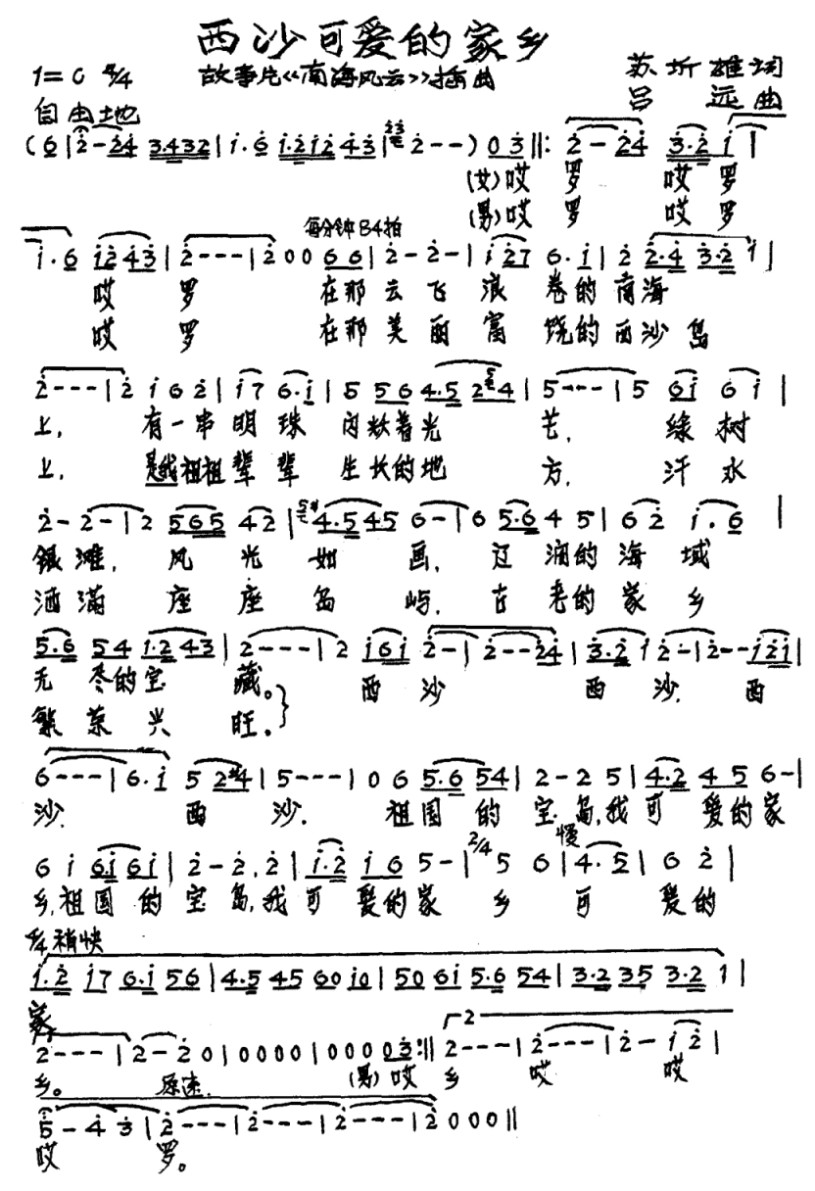 西沙可爱的家乡
1=C 4/4 故事片《南海风云》插曲 苏圻雄词
自由地 吕远曲
(6|2-24 3.432|1.6 1.212 43|23 2--)03‖:2-24 3.2 1|
(女)哎 罗 哎 罗
(男)哎 罗 哎 罗
1.6 12 43|2---|2 0 0 每分钟84拍 66|2-2-|1 27 6.1|2 2.4 3.2 1|
哎 罗 在那云飞浪卷的南海
哎 罗 在那美丽富饶的西沙岛
2---|2 1 6 2|17 6.1|5 56 4.5 2 5 4|5---|5 61 6 1|
上, 有一串明珠闪烁着光芒, 绿树
上, 是我祖祖辈辈生长的地方, 汗水
2-2-|2 565 42|4.5 45 6-|6 5.6 4 5|6 2 1.6|
银滩, 风光如画, 辽阔的海域
洒满座座岛屿, 古老的家乡
5.6 54 1.2 43|2---|2 161 2-|2--24|3.2 1 2-|2--121|
无尽的宝藏。 西沙 西沙, 西
繁荣兴旺。
6---|6.1 5 2#4|5---|0 6 5.6 54|2-2 5|4.2 4 5 6-|
沙, 西沙, 祖国的宝岛,我可爱的家
6 1 61 61|2-2.2|1.2 16 5-|2/4 5 6|慢 4.5|6 2|
乡,祖国的宝岛,我可爱的家乡可爱的
4/4 稍快
1.2 17 6.1 56|4.5 45 60 10|50 61 5.6 54|3.2 35 3.2 1|
家
2---|2-2 0|0000|0000 03:‖2 2---|2---|2-12|
乡。 原速. (男)哎 乡 哎 哎
5-43|2---|2---|2---|2 000‖
哎 罗。